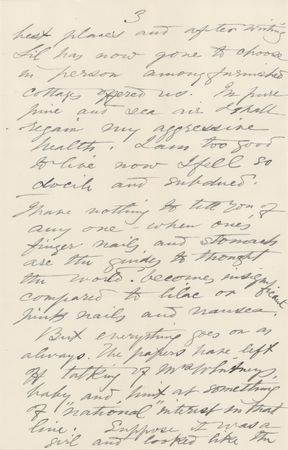 3
best places and after writing
Lil has now gone to choose
in person among furnished
cottages offered us. In pure
pine and sea air I shall
regain my aggressive
health; I am too good
to live now I feel so
docile and subdued.
I have nothing to tell you of
any one – when one's
finger nails and stomach
are the guides to thought
the world becomes insignificant
compared to lilac or
pink nails and nausea.
But everything goes on as
always. The papers have left
off talking of Mrs Whitney's
baby and hint at something
of "national" interest in that
line. Suppose it was a
girl and looked like the